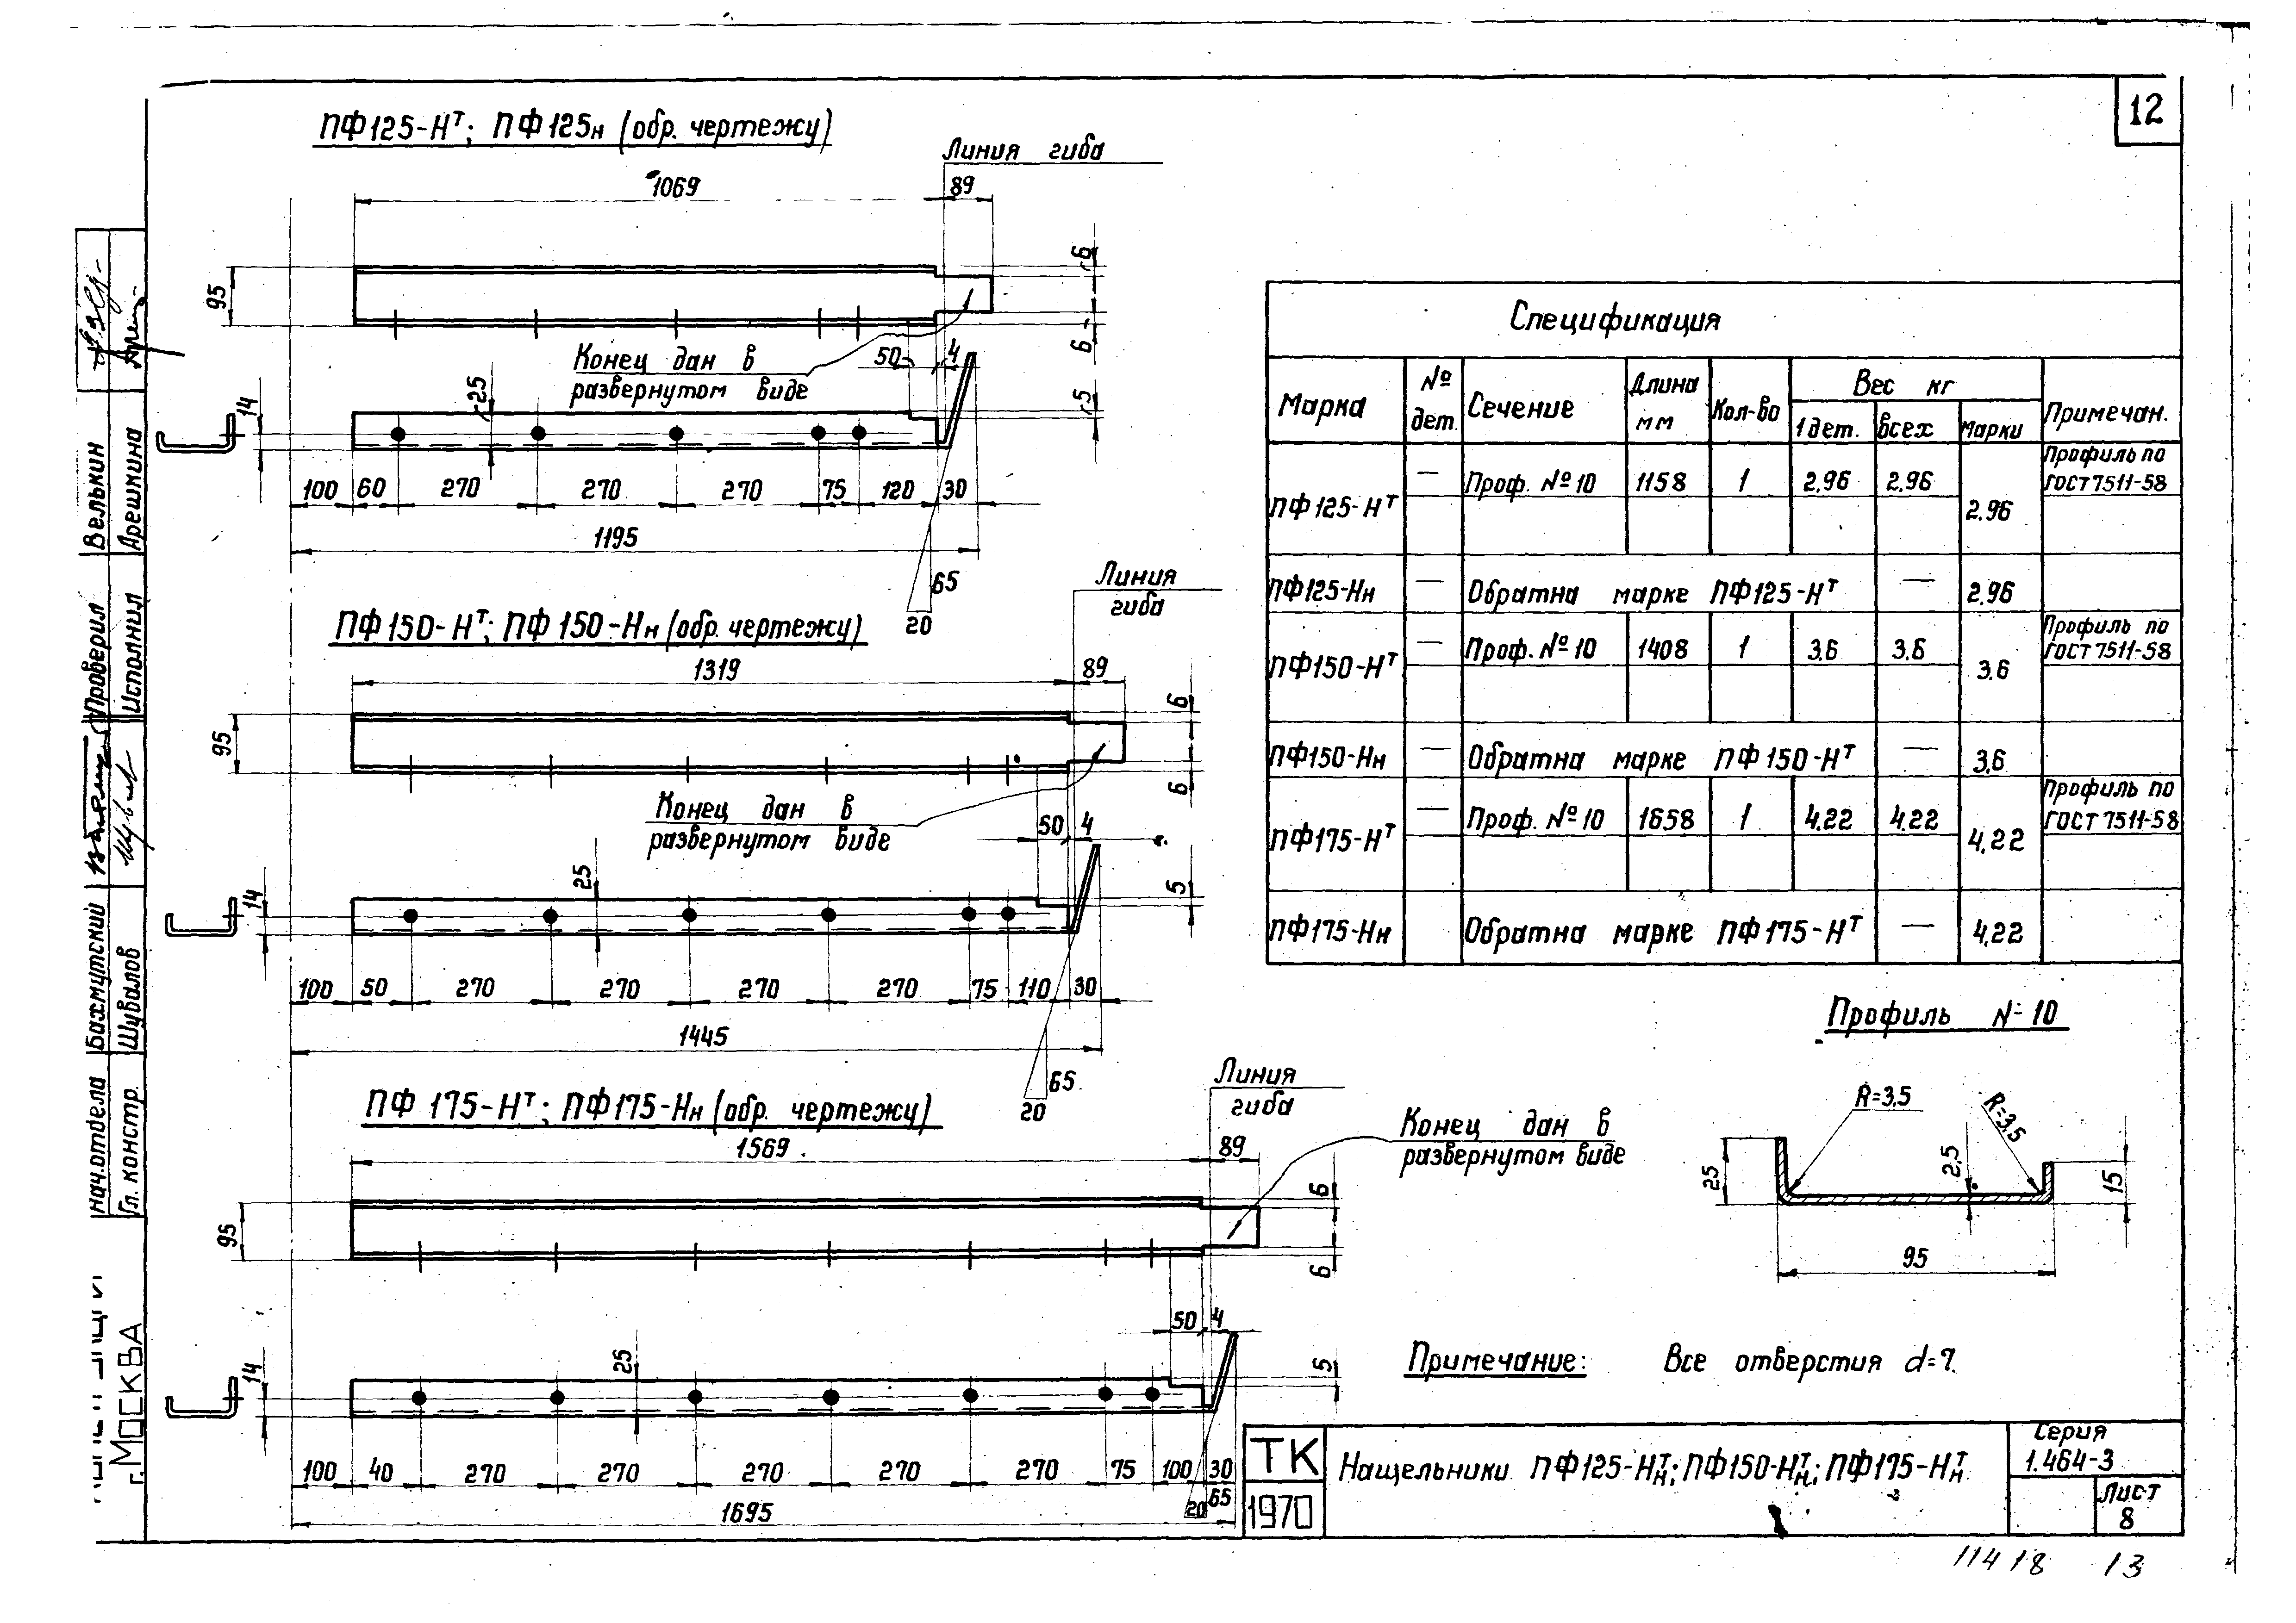 12
ПФ125-Нᵀ; ПФ125н (обр. чертежу)
Линия гиба
1069
89
6
95
6
Конец дан в
развернутом виде
50
4
25
5
14
100 60 270 270 270 75 120 30
1195
65
20
ПФ150-Нᵀ; ПФ150-Нн (обр. чертежу)
Линия
гиба
1319
89
6
95
6
Конец дан в
развернутом виде
50
4
25
5
14
100 50 270 270 270 270 75 110 30
1445
65
20
ПФ 175-Нᵀ; ПФ175-Нн (обр. чертежу)
Линия
гиба
1569
89
Конец дан в
развернутом виде
6
95
6
50
4
25
5
14
100 40 270 270 270 270 270 75 100 30
20 65
1695
Спецификация
Марка № дет. Сечение Длина мм Кол-во Вес кг Примечан.
1 дет. всех марки
ПФ125-Нᵀ — Проф. №10 1158 1 2.96 2.96 2.96 Профиль по ГОСТ 7511-58
ПФ125-Нн — Обратна марке ПФ125-Нᵀ — 2.96
ПФ150-Нᵀ — Проф. №10 1408 1 3.6 3.6 3.6 Профиль по ГОСТ 7511-58
ПФ150-Нн — Обратна марке ПФ150-Нᵀ — 3.6
ПФ175-Нᵀ — Проф. №10 1658 1 4.22 4.22 4.22 Профиль по ГОСТ 7511-58
ПФ175-Нн Обратна марке ПФ175-Нᵀ — 4.22
Профиль N-10
R=3,5
R=3,5
25
2,5
15
95
Примечание: Все отверстия d=7.
ТК
1970
Нащельники ПФ125-Нᵀн; ПФ150-Нᵀн; ПФ175-Нᵀн
Серия
1.464-3
Лист
8
11418 13
Проверил Велькин
Исполнил Арешкина
нач.отдела Бахмутский
Гл. констр. Шувалов
г. МОСКВА